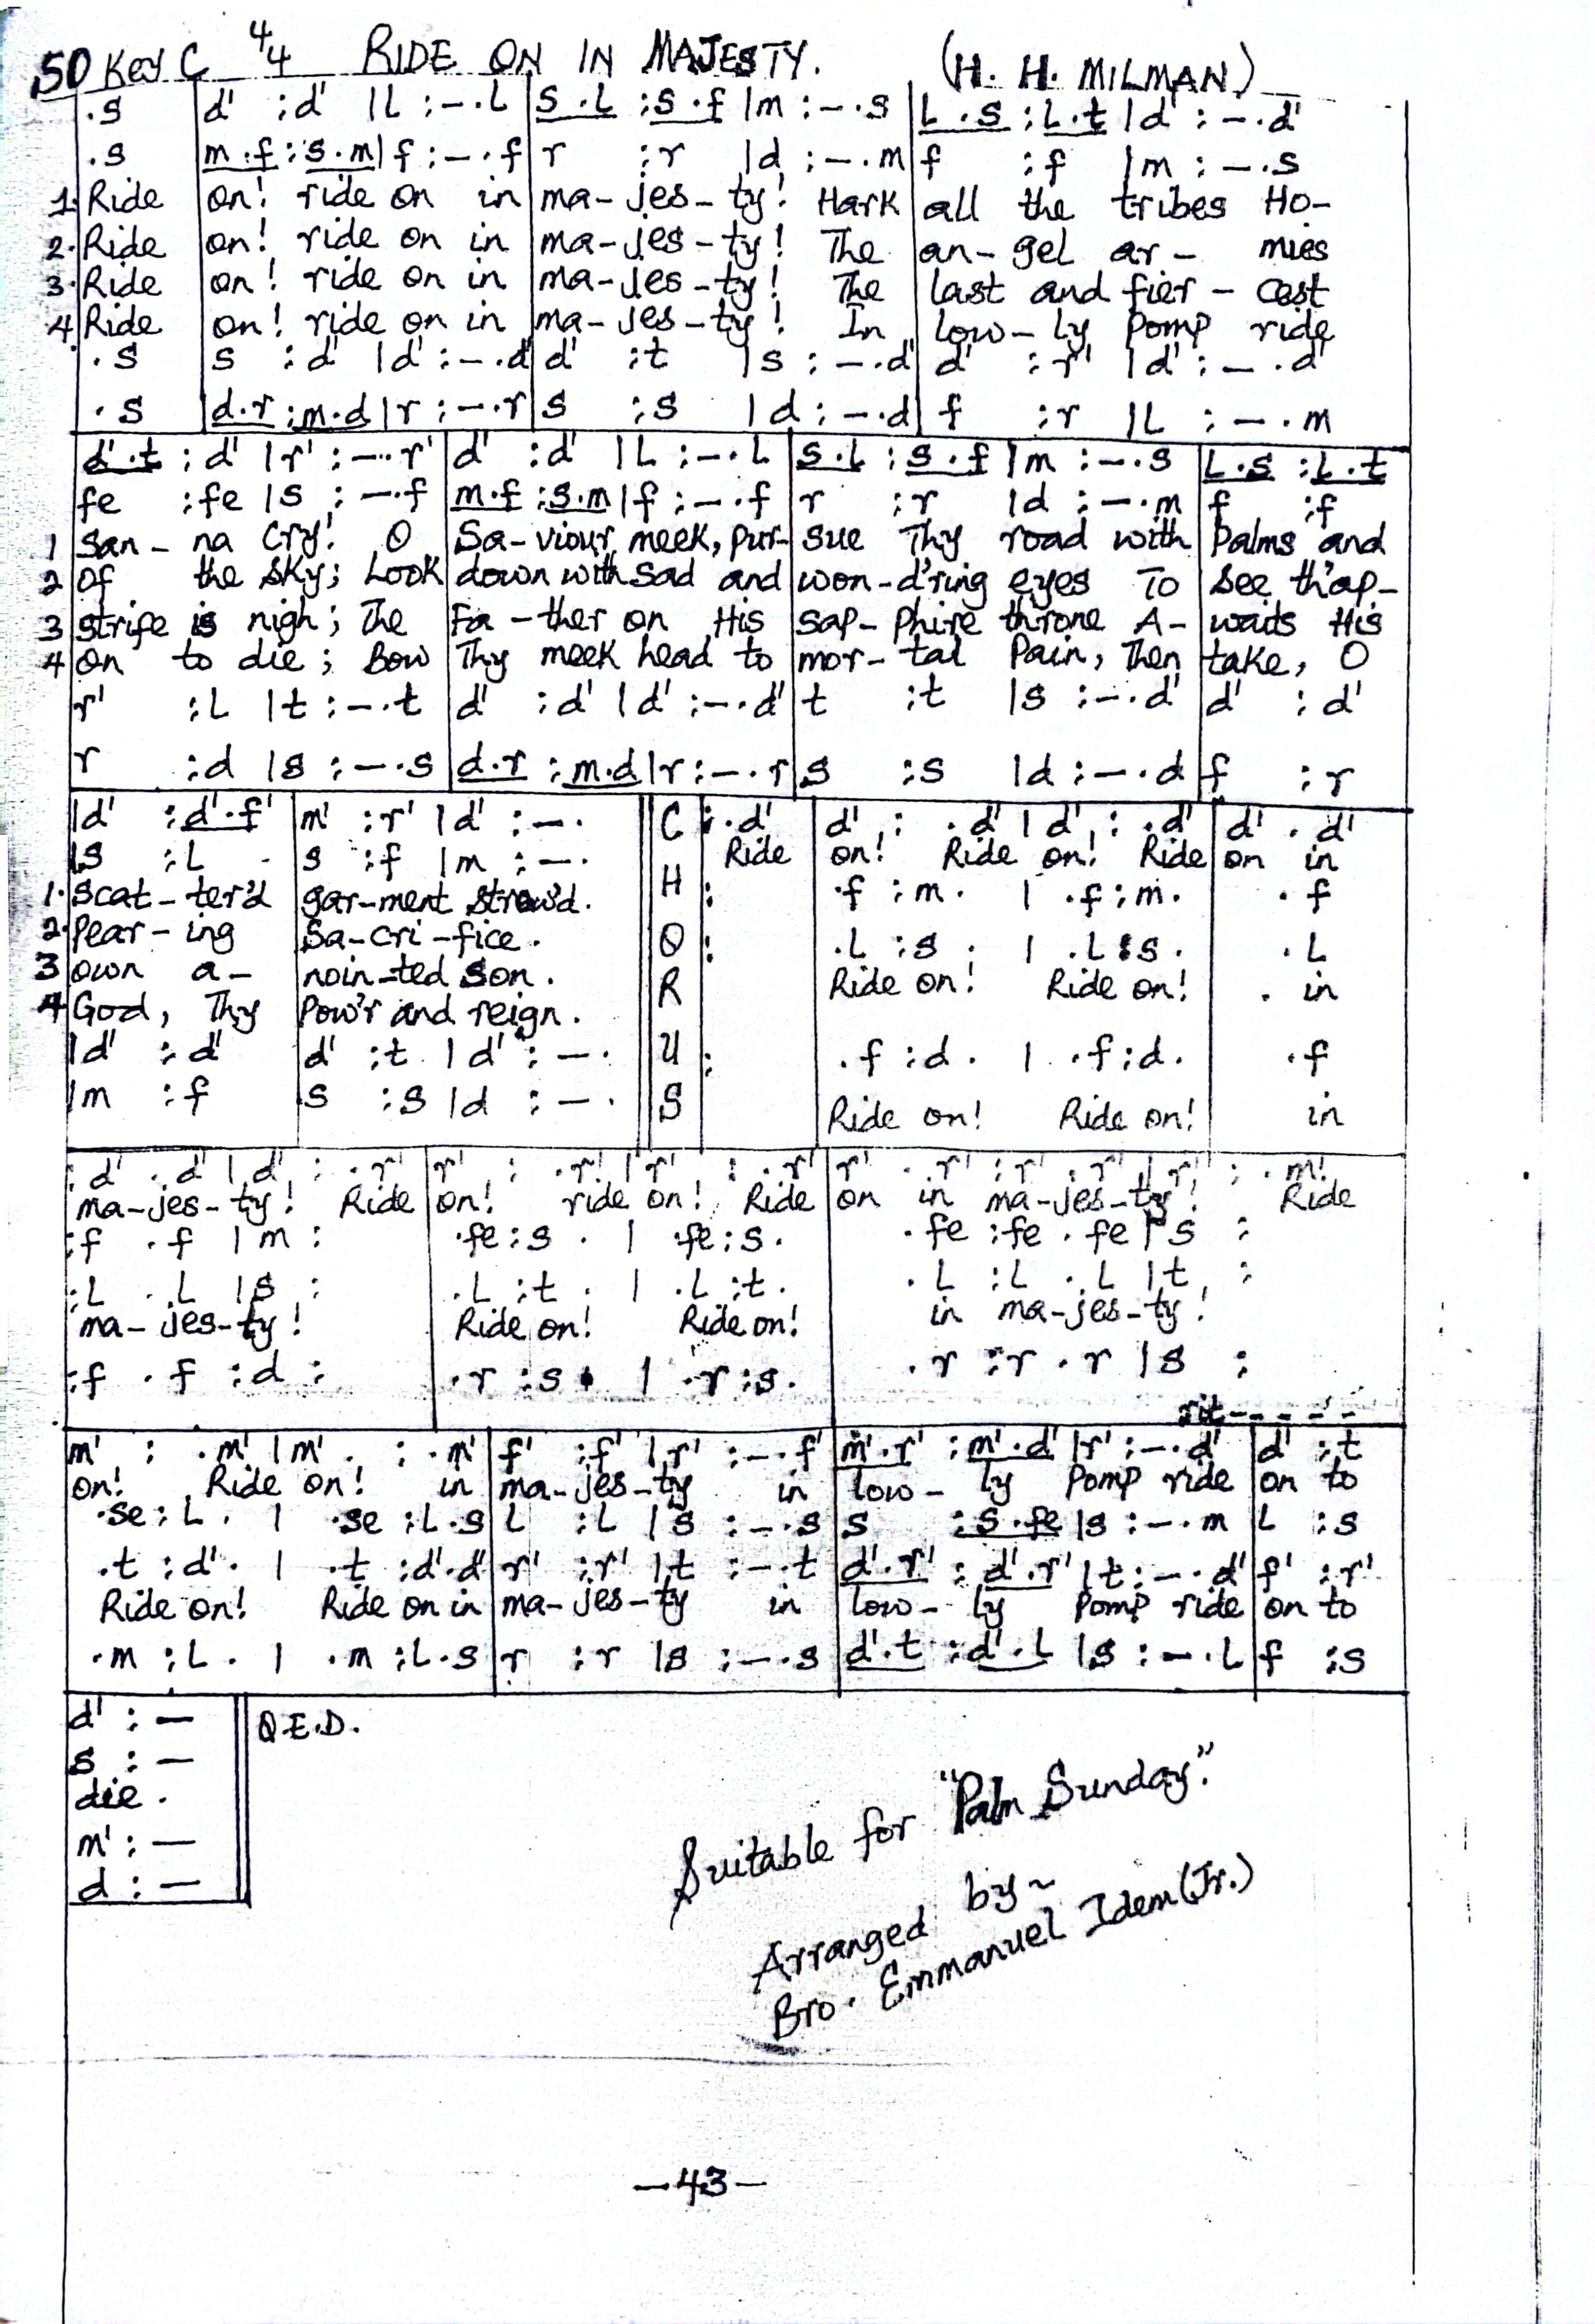 50 Key C 4/4 RIDE ON IN MAJESTY. (H. H. MILMAN)
.s | d' :d' |L :-.L | s.L :s.f |m :-.s | L.s :L.t |d' :-.d'
.s | m.f :s.m |f :-.f | r :r |d :-.m | f :f |m :-.s
1. Ride on! ride on in ma-jes-ty! Hark all the tribes Ho-
2. Ride on! ride on in ma-jes-ty! The an-gel ar- mies
3. Ride on! ride on in ma-jes-ty! The last and fier-cest
4. Ride on! ride on in ma-jes-ty! In low-ly Pomp ride
.s | s :d' |d' :-.d' | d' :t |s :-.d' | d' :r' |d' :-.d'
.s | d.r :m.d |r :-.r | s :s |d :-.d | f :r |L :-.m
d'.t :d' |r' :-.r' | d' :d' |L :-.L | s.L :s.f |m :-.s | L.s :L.t
fe :fe |s :-.f | m.f :s.m |f :-.f | r :r |d :-.m | f :f
1 San-na Cry! O Sa-viour meek, pur-sue Thy road with Palms and
2 Of the Sky; Look down with sad and won-d'ring eyes To see th'ap-
3 strife is nigh; The Fa-ther on His sap-phire throne A-waits His
4 On to die; Bow Thy meek head to mor-tal Pain, Then take, O
r' :L |t :-.t | d' :d' |d' :-.d' | t :t |s :-.d' | d' :d'
r :d |s :-.s | d.r :m.d |r :-.r | s :s |d :-.d | f :r
|d' :d'.f' | m' :r' |d' :-. || C : .d' | d' : .d' |d' : .d' | d' . d'
|s :L | s :f |m :-. Ride on! Ride on! Ride on in
1. Scat-ter'd gar-ment strew'd. H : .f :m. | .f :m. . f
2. Pear-ing Sa-cri-fice. O : .L :s . | .L :s. . L
3 own a-noin-ted Son. R Ride on! Ride on! . in
4 God, Thy Pow'r and reign.
|d' :d' | d' :t |d' :-. U : .f :d . | .f :d. . f
|m :f | s :s |d :-. S Ride on! Ride on! in
:d' .d' |d' : .r' | r' : .r' |r' : .r' | r' .r' :r' .r' |r' : .m'
ma-jes-ty! Ride on! ride on! Ride on in ma-jes-ty! Ride
:f .f |m : | .fe :s . | .fe :s. | .fe :fe .fe |s :
:L .L |s : | .L :t . | .L :t. | .L :L .L |t :
ma-jes-ty! Ride on! Ride on! in ma-jes-ty!
:f .f :d : | .r :s . | .r :s. | .r :r .r |s :
rit - - - -
m' : .m' |m' . : .m' | f' :f' |r' :-.f' | m'.r' :m'.d' |r' :-.d' | d' :t
on! Ride on! in ma-jes-ty in low-ly Pomp ride on to
.se :L . | .se :L.s | L :L |s :-.s | s :s.fe |s :-.m | L :s
.t :d' . | .t :d'.d' | r' :r' |t :-.t | d'.r' :d'.r' |t :-.d' | f' :r'
Ride on! Ride on in ma-jes-ty in low-ly Pomp ride on to
.m :L . | .m :L.s | r :r |s :-.s | d'.t :d'.L |s :-.L | f :s
d' :- || Q.E.D.
s :-
die.
m' :-
d :-
Suitable for "Palm Sunday".
Arranged by~
Bro. Emmanuel Idem (Jr.)
-43-